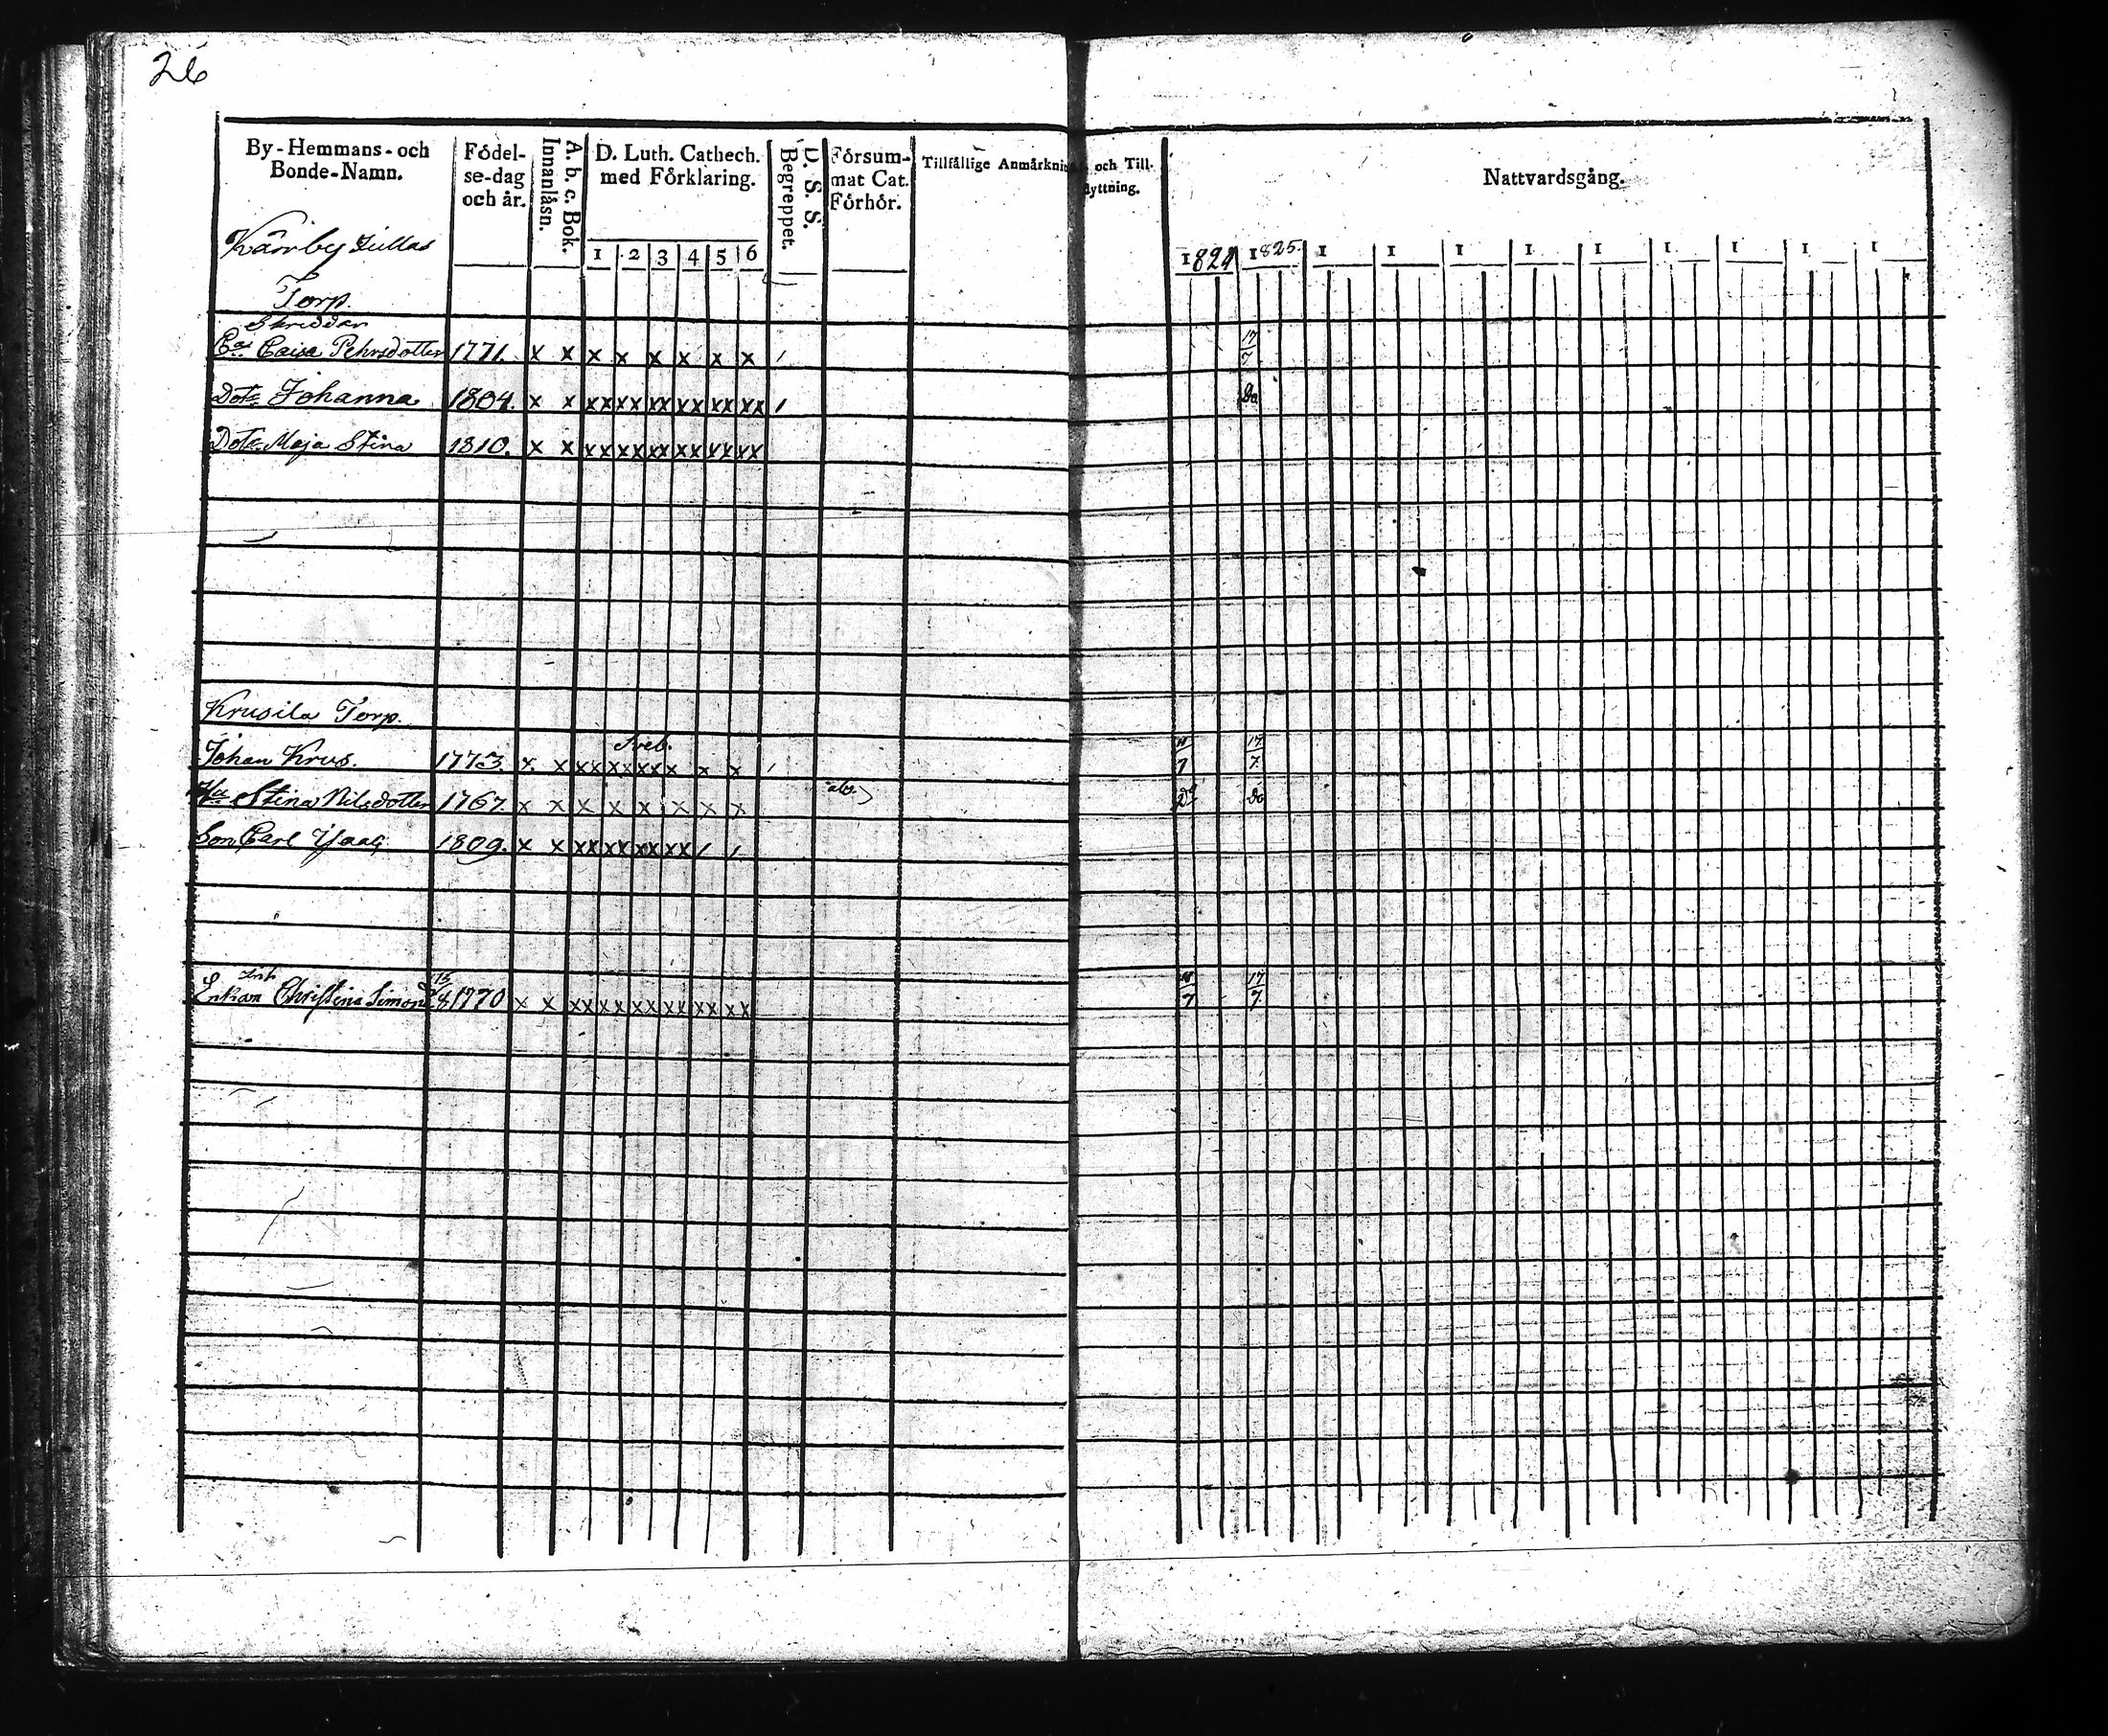 26
By-Hemmans-och Bonde-Namn.
Födel-se-dag och år.
A. b. c. Bok. Innanläsn.
D. Luth. Cathech. med Förklaring.
D. S. S. Begreppet.
Försum-mat Cat. Förhör.
Tillfällige Anmärkning och Till- flyttning.
Nattvardsgång.
1 2 3 4 5 6
1824 1825. 1 1 1 1 1 1 1 1 1
Torp.
Caisa Pehrsdotter 1771. x x x x x x x x / 17/7
Dotr Johanna 1804. x x xx xx xx xx xx xx / Do
Dotr Maja Stina 1810. x x xx xx xx xx xx xx
Krusila Torp.
Sveb.
Johan Krus. 1773. x x xx xx xx x x x / 17/7
Stina Nilsdotter 1767. x x x x x x x x abs. Do Do
Son Carl Isaac 1809. x x xx xx xx xx / /
Inh
Enkan Christina Simonsd 15/8 1770 x x xx xx xx xx xx xx 17/7